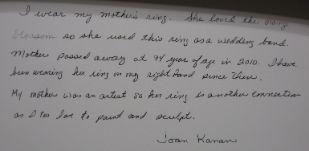 I wear my mother's ring. She loved the
blossom so she used this ring as a wedding band.
Mother passed away at 94 year of age in 2010. I have
been wearing her ring on my right hand since then.
My mother was an artist so her ring is another connection
as I too love to paint and sculpt.
Joan Kanan